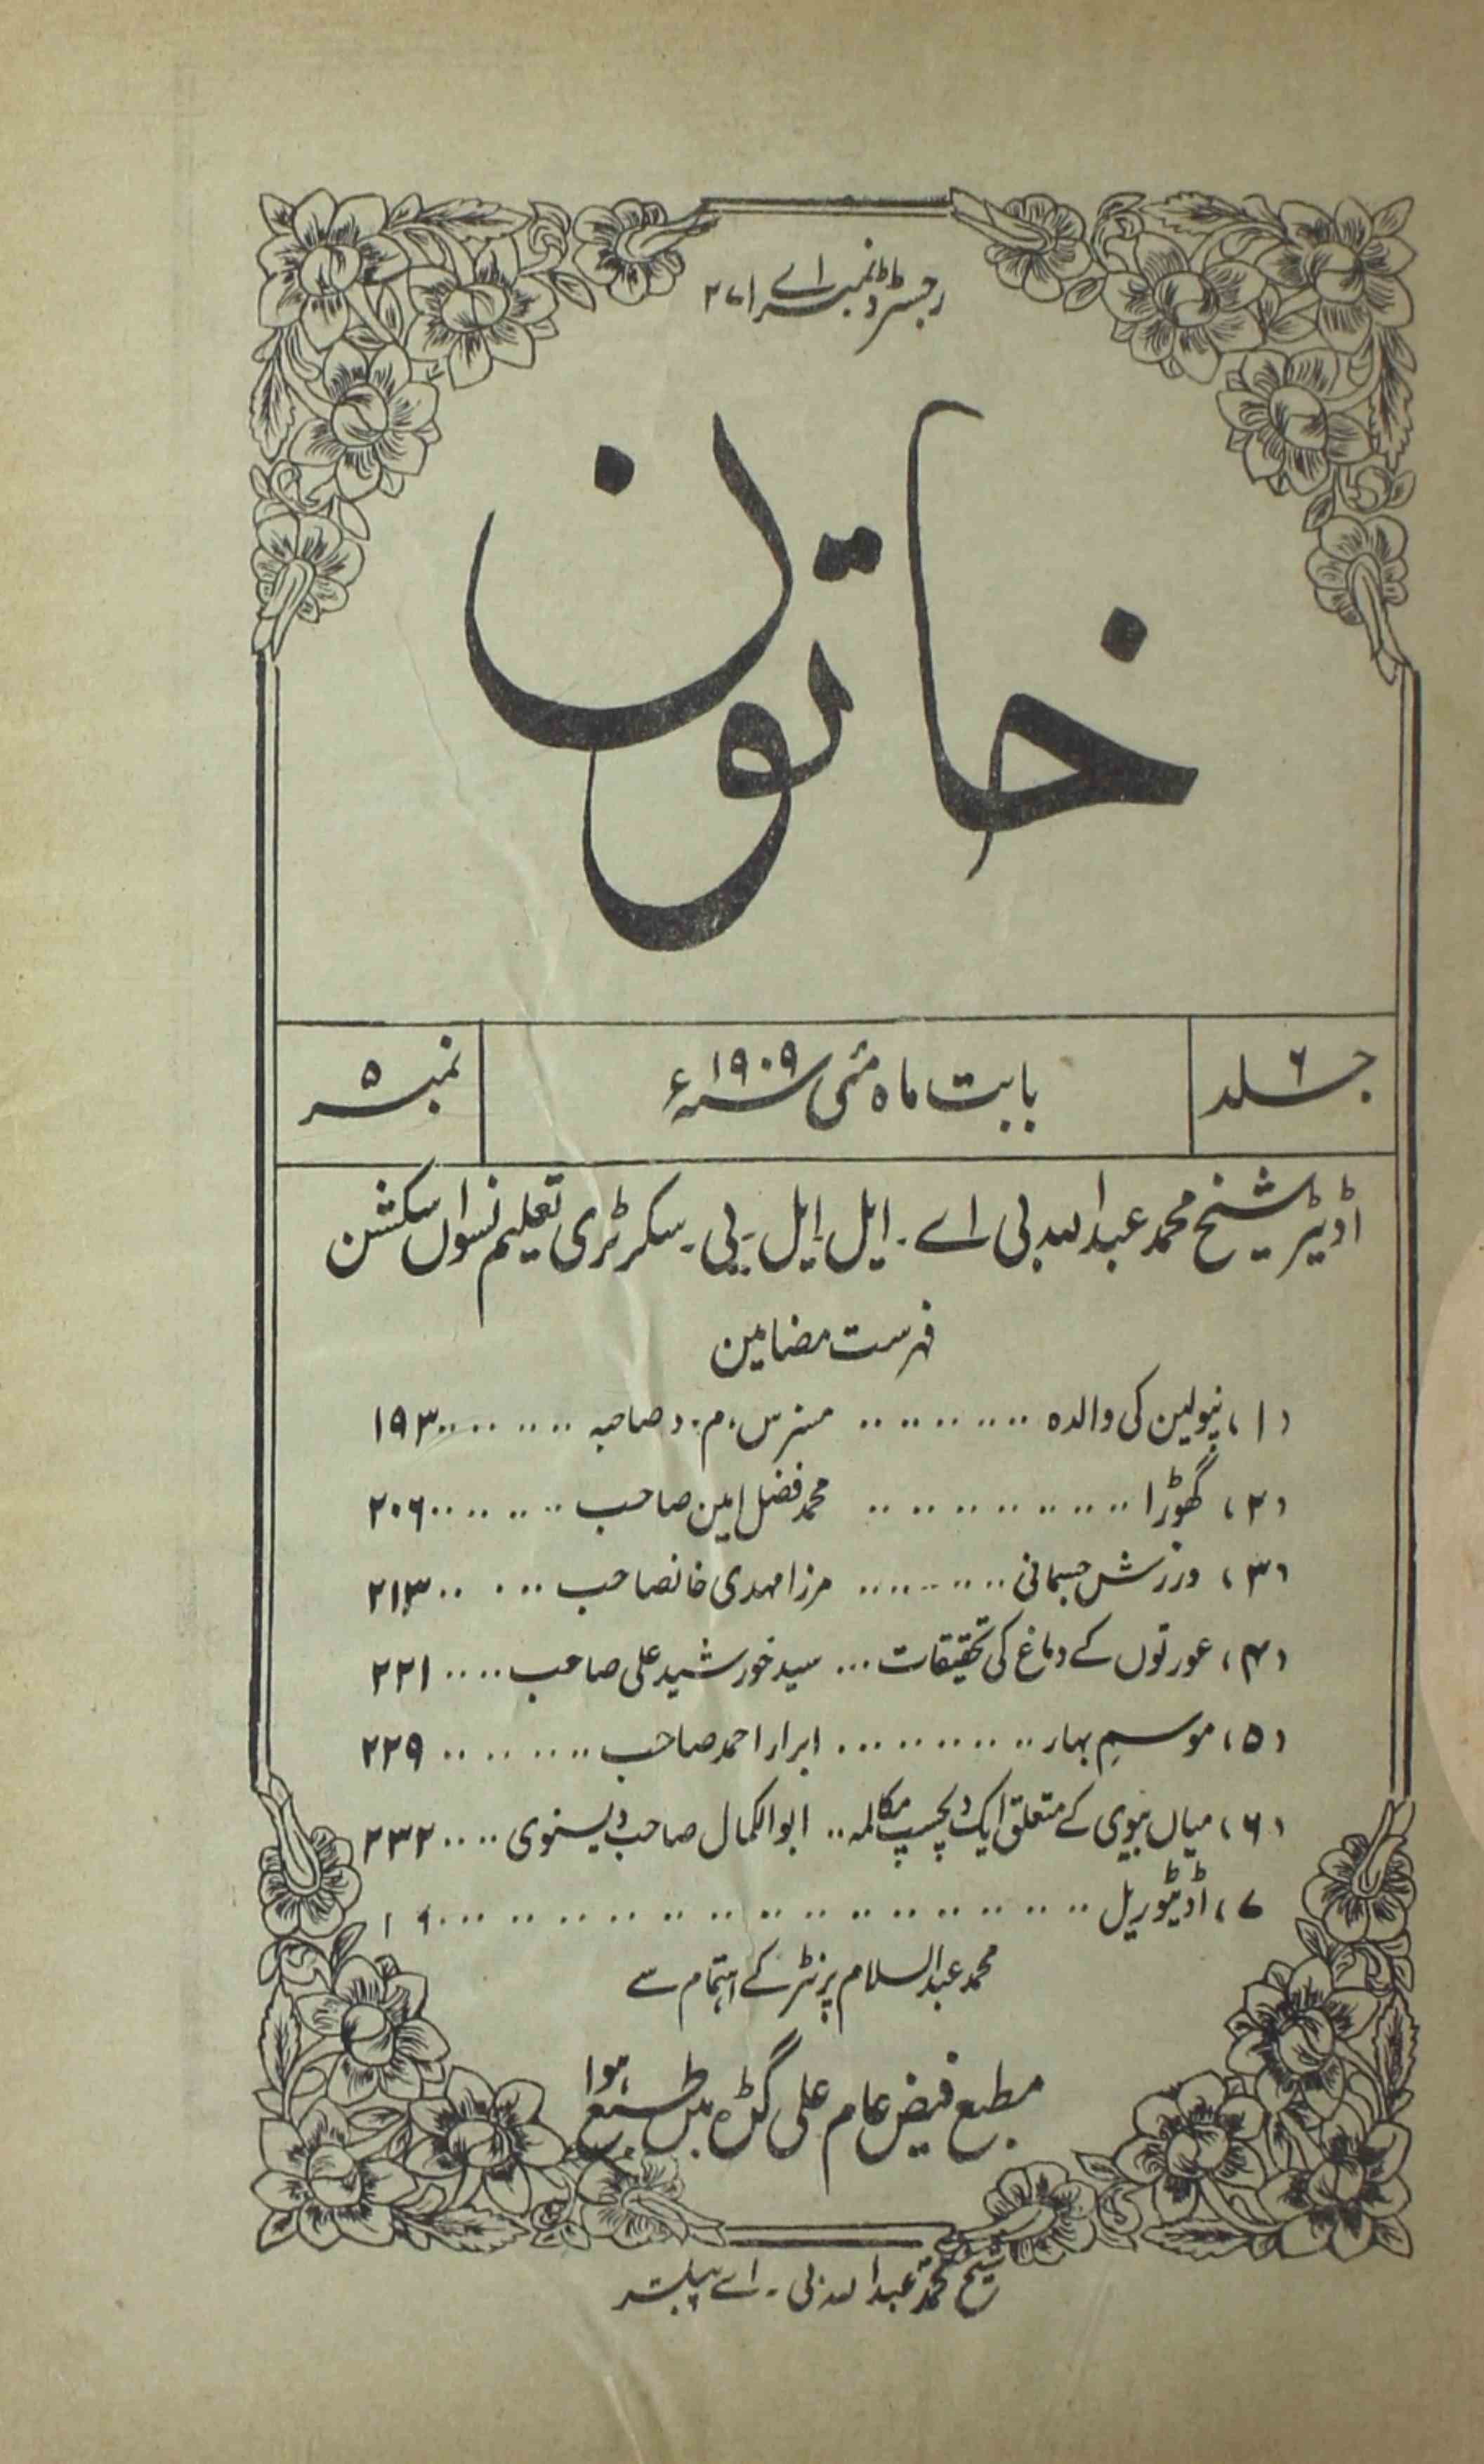 رجسٹرڈ نمبر اے ۲۷۱
خاتون
جلد ۶
بابت ماہ مئی سنہ ۱۹۰۹ء
نمبر ۵
اڈیٹر شیخ محمد عبداللہ بی اے۔ ایل ایل۔ بی۔ سکرٹری تعلیم نسواں سکشن
فہرست مضامین
(۱) نپولین کی والدہ .......... مسز س۔ م۔ د صاحبہ .......... ۱۹۳
(۲) گھوڑا .......... محمد فضل امین صاحب .......... ۲۰۶
(۳) ورزش جسمانی .......... مرزا مہدی خانصاحب .......... ۲۱۳
(۴) عورتوں کے دماغ کی تحقیقات ... سید خورشید علی صاحب .... ۲۲۱
(۵) موسم بہار .......... ابرار احمد صاحب .......... ۲۲۹
(۶) میاں بیوی کے متعلق ایک دلچسپ مکالمہ .. ابوالکمال صاحب دیسنوی .... ۲۳۲
۷) اڈیٹوریل ..........
محمد عبدالسلام پرنٹر کے اہتمام سے
مطبع فیض عام علی گڑہ میں طبع ہوا
شیخ محمد عبداللہ بی۔ اے پبلشر